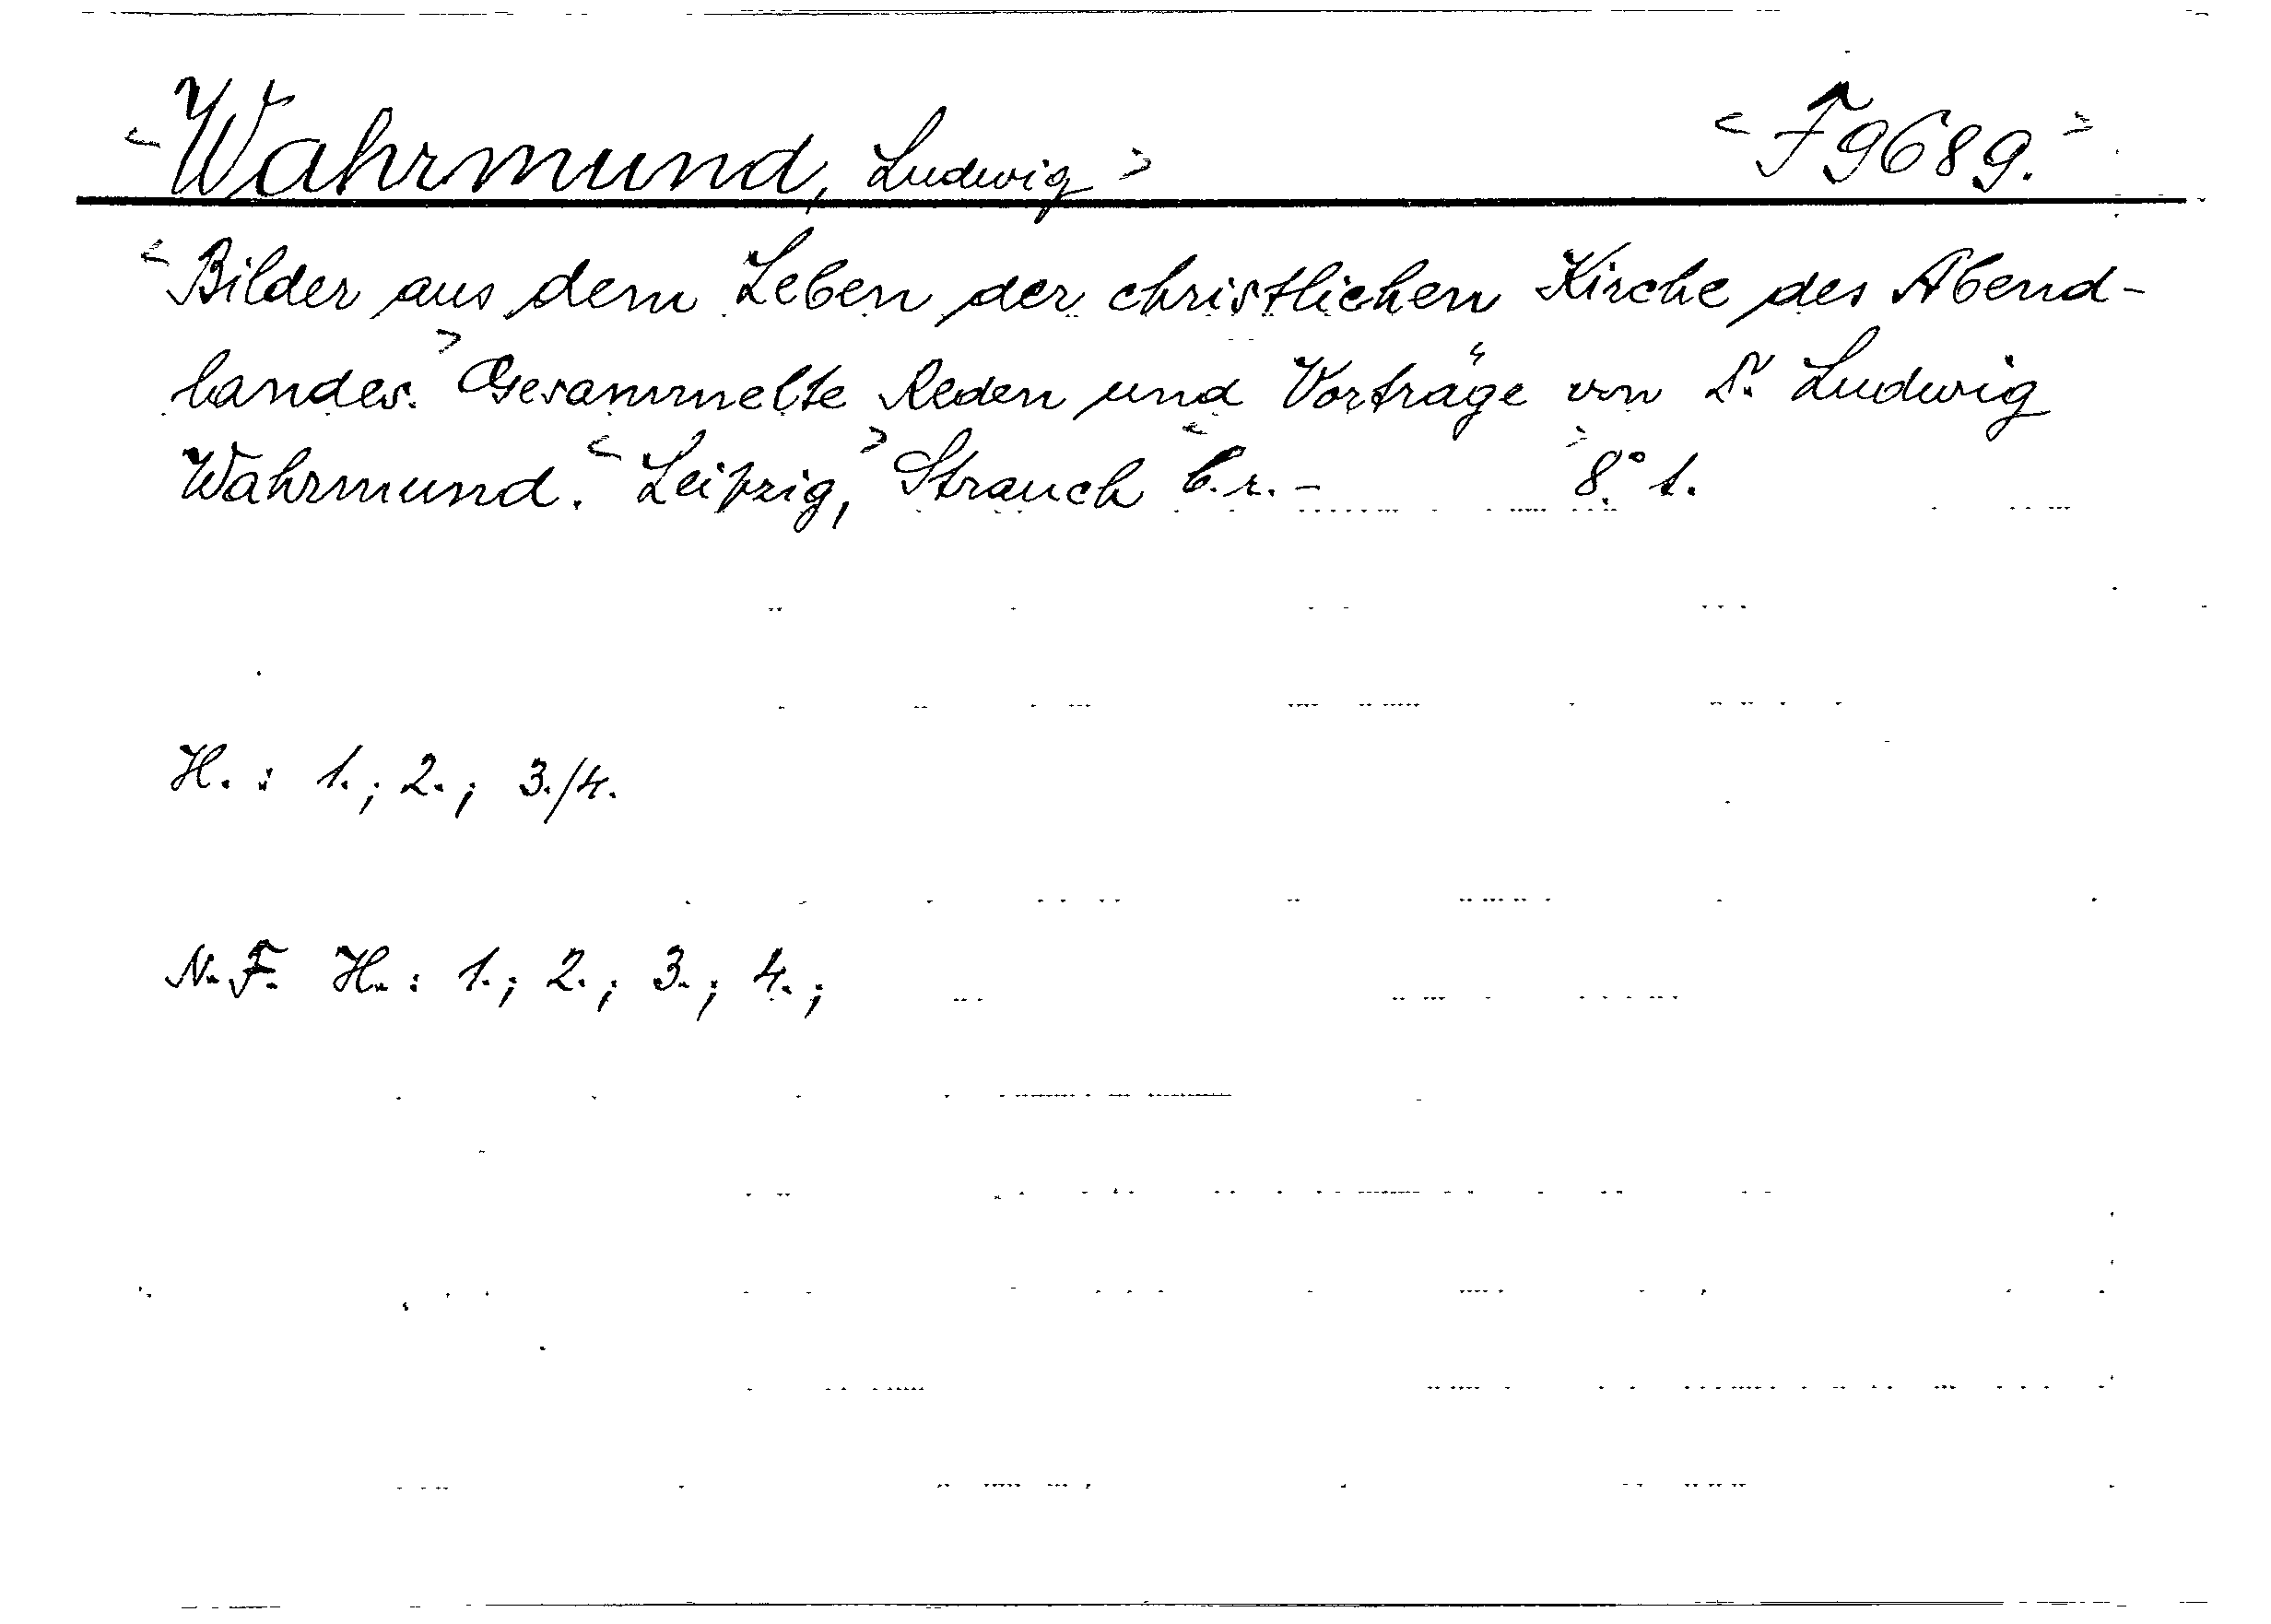 <Wahrmund, Ludwig> <F 9689.>
<Bilder aus dem Leben der christlichen Kirche des Abend-
landes.> Gesammelte Reden und Vorträge von Dr. Ludwig
Wahrmund. <Leipzig,> Strauch <b.r. - > 8.° 1.
H.: 1.; 2.; 3./4.
N.F. H.: 1.; 2.; 3.; 4.;